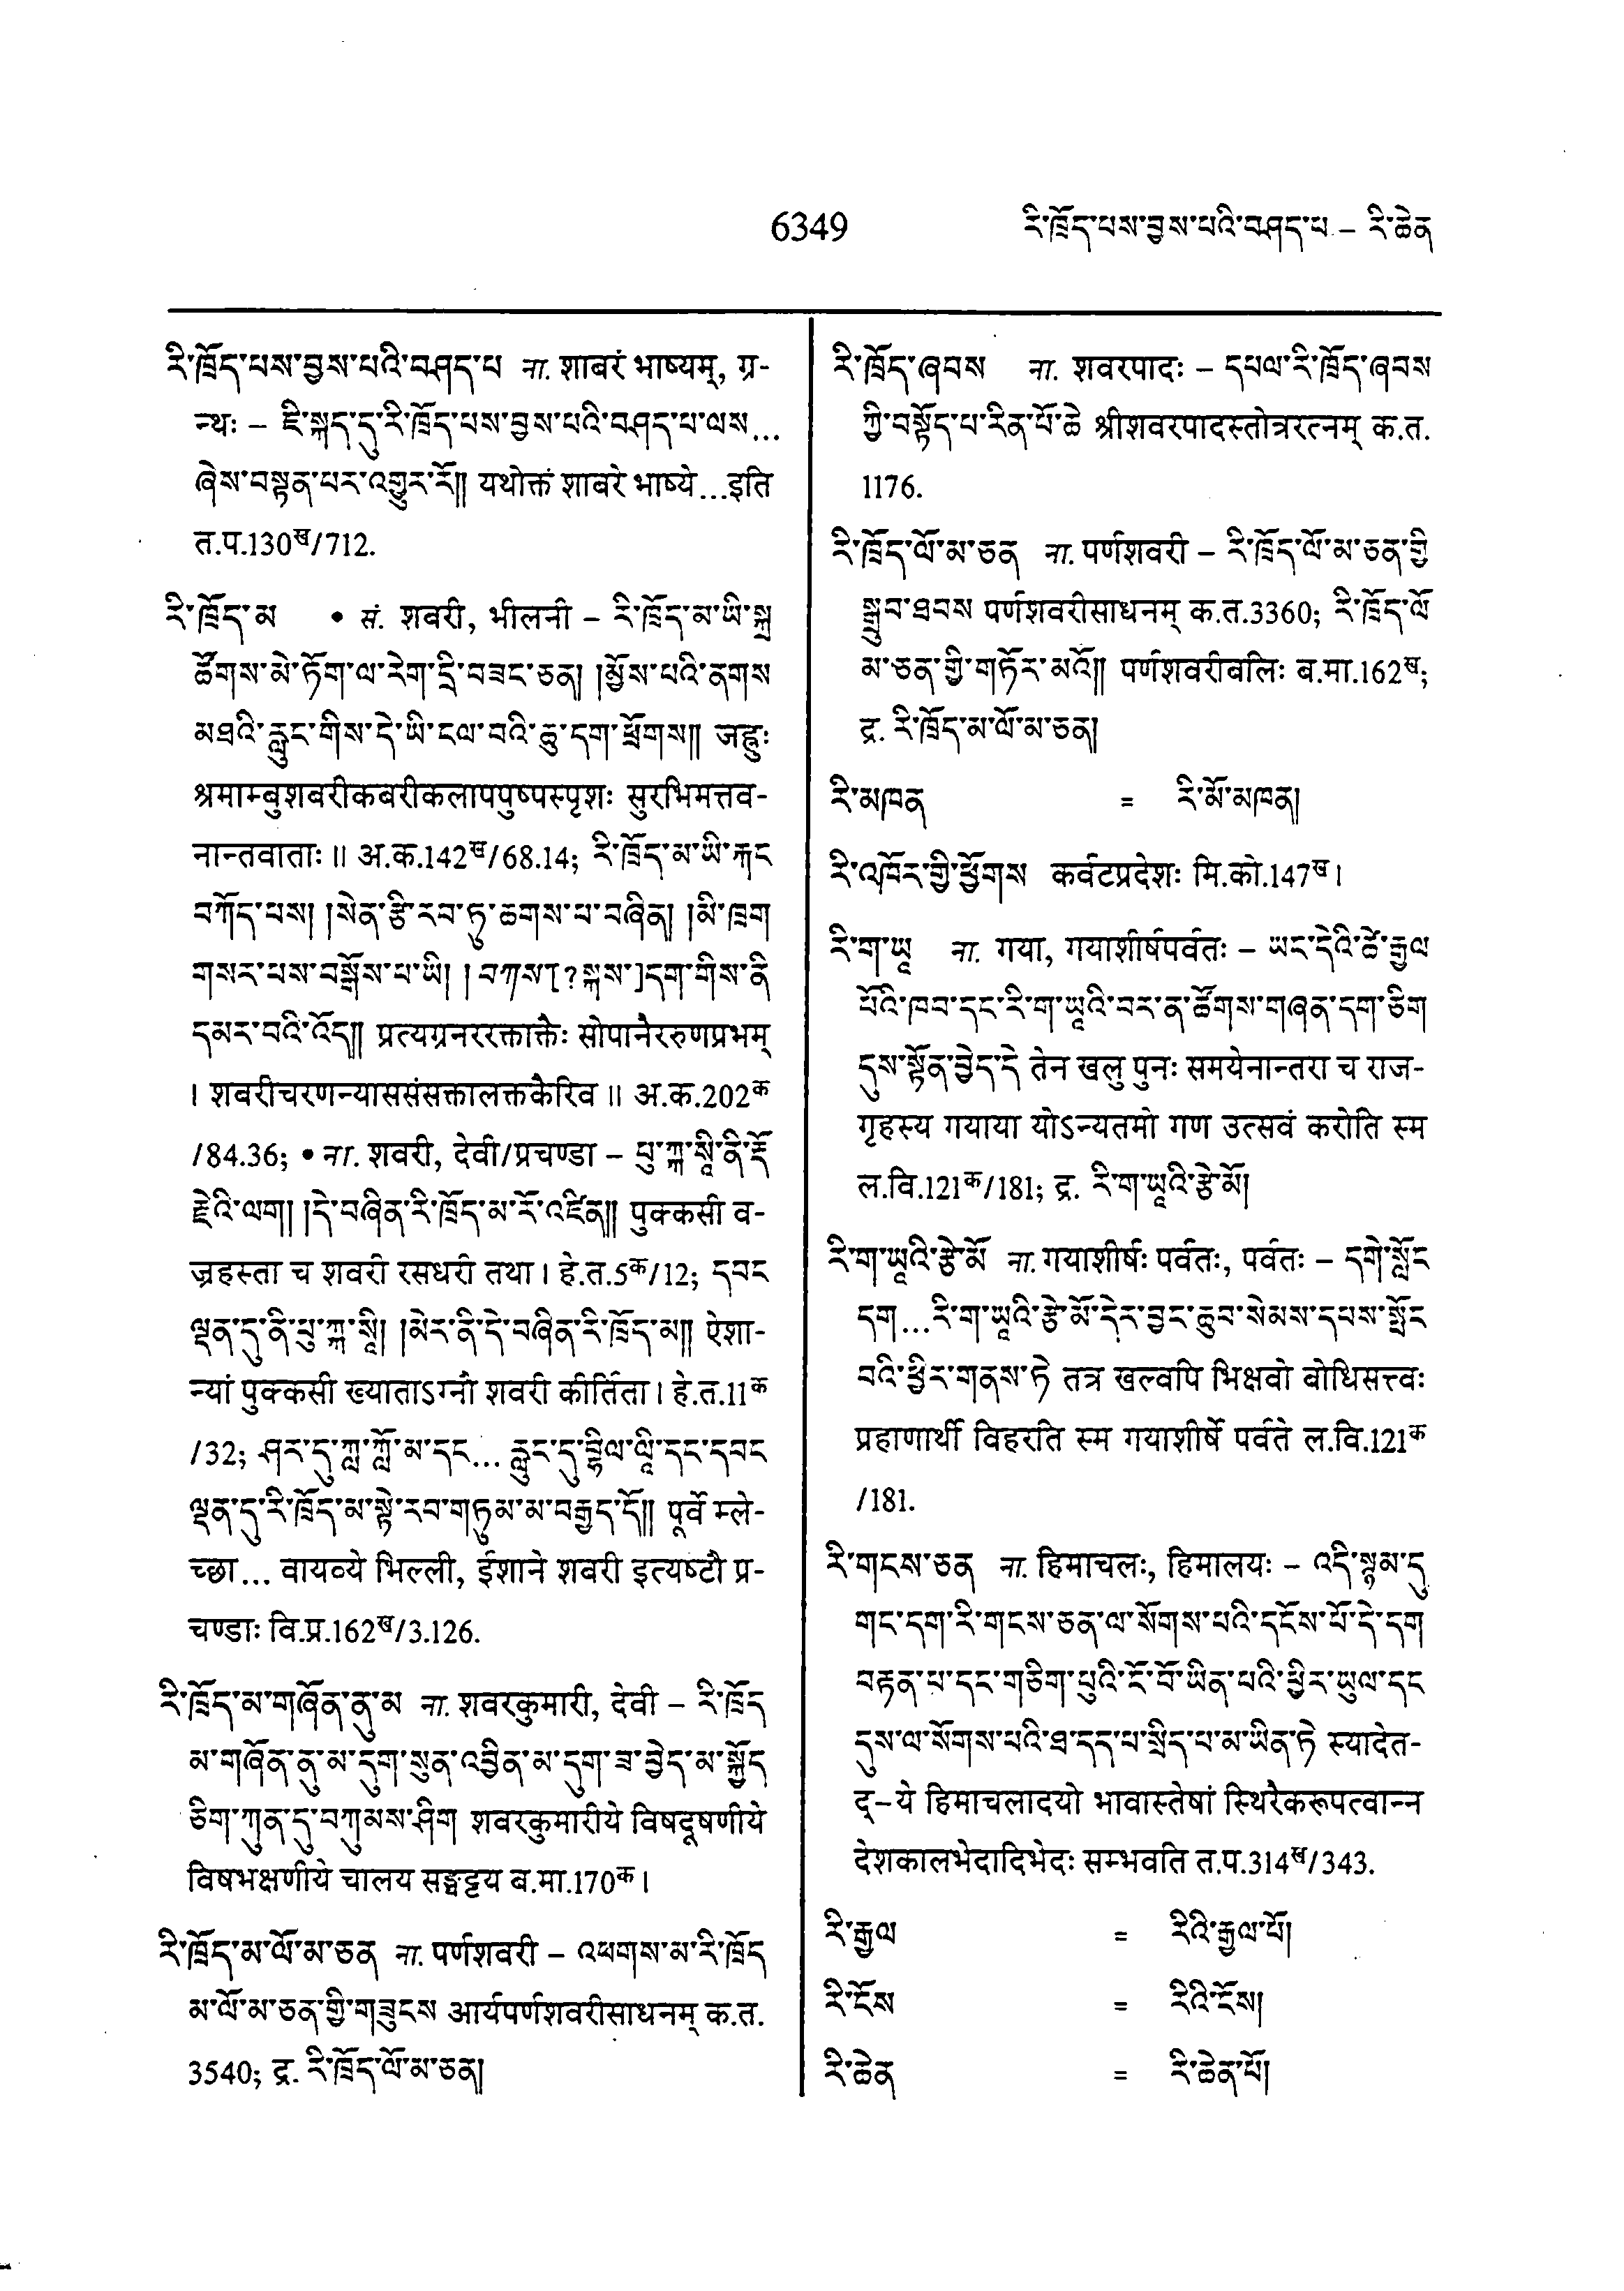 6349
རི་ཁྲོད་པས་བྱས་པའི་བཤད་པ – རི་ཆེན
རི་ཁྲོད་པས་བྱས་པའི་བཤད་པ ना. शाबरं भाष्यम्, ग्र-
न्थः – ཇི་སྐད་དུ་རི་ཁྲོད་པས་བྱས་པའི་བཤད་པ་ལས...
ཞེས་བསྟན་པར་འགྱུར་རོ།། यथोक्तं शाबरे भाष्ये...इति
त.प.130ख/712.
རི་ཁྲོད་མ • सं. शवरी, भीलनी – རི་ཁྲོད་མ་ཡི་སྐྲ
ཚོགས་མེ་ཏོག་ལ་རེག་དྲི་བཟང་ཅན། །མྱོས་པའི་ནགས
མཐའི་རླུང་གིས་དེ་ཡི་ངལ་བའི་ཆུ་དག་ཕྲོགས།། जह्रुः
श्रमाम्बुशबरीकबरीकलापपुष्पस्पृशः सुरभिमत्तव-
नान्तवाताः ॥ अ.क.142ख/68.14; རི་ཁྲོད་མ་ཡི་རྐང
བཀོད་པས། །སེན་རྩི་རབ་ཏུ་ཆགས་པ་བཞིན། །མི་ཁྲག
གསར་པས་བསྒོས་པ་ཡི། །བཀས[?སྐས་]དག་གིས་ནི
དམར་བའི་འོད།། प्रत्यग्रनररक्ताक्तैः सोपानैररुणप्रभम्
। शवरीचरणन्याससंसक्तालक्तकैरिव ॥ अ.क.202क
/84.36; • ना. शवरी, देवी/प्रचण्डा – པུ་ཀྐ་སཱི་ནི་རྡོ
རྗེའི་ལག། །དེ་བཞིན་རི་ཁྲོད་མ་རོ་འཛིན།། पुक्कसी व-
ज्रहस्ता च शवरी रसधरी तथा । हे.त.5क/12; དབང
ལྡན་དུ་ནི་པུ་ཀྐ་སཱི། །མེར་ནི་དེ་བཞིན་རི་ཁྲོད་མ།། ऐशा-
न्यां पुक्कसी ख्याताऽग्नौ शवरी कीर्तिता । हे.त.11क
/32; ཤར་དུ་ཀླ་ཀློ་མ་དང... རླུང་དུ་བྷིལ་ལཱི་དང་དབང
ལྡན་དུ་རི་ཁྲོད་མ་སྟེ་རབ་གཏུམ་མ་བརྒྱད་དོ།། पूर्वे म्ले-
च्छा... वायव्ये भिल्ली, ईशाने शवरी इत्यष्टौ प्र-
चण्डाः वि.प्र.162ख/3.126.
རི་ཁྲོད་མ་གཞོན་ནུ་མ ना. शवरकुमारी, देवी – རི་ཁྲོད
མ་གཞོན་ནུ་མ་དུག་སུན་འབྱིན་མ་དུག་ཟ་བྱེད་མ་སྐྱོད
ཅིག་ཀུན་དུ་བཀུམས་ཤིག शवरकुमारीये विषदूषणीये
विषभक्षणीये चालय सङ्घट्टय ब.मा.170क ।
རི་ཁྲོད་མ་ལོ་མ་ཅན ना. पर्णशवरी – འཕགས་མ་རི་ཁྲོད
མ་ལོ་མ་ཅན་གྱི་གཟུངས आर्यपर्णशवरीसाधनम् क.त.
3540; द्र. རི་ཁྲོད་ལོ་མ་ཅན།
རི་ཁྲོད་ཞབས ना. शवरपादः – དཔལ་རི་ཁྲོད་ཞབས
ཀྱི་བསྟོད་པ་རིན་པོ་ཆེ श्रीशवरपादस्तोत्ररत्नम् क.त.
1176.
རི་ཁྲོད་ལོ་མ་ཅན ना. पर्णशवरी – རི་ཁྲོད་ལོ་མ་ཅན་གྱི
སྒྲུབ་ཐབས पर्णशवरीसाधनम् क.त.3360; རི་ཁྲོད་ལོ
མ་ཅན་གྱི་གཏོར་མའོ།། पर्णशवरीबलिः ब.मा.162ख;
द्र. རི་ཁྲོད་མ་ལོ་མ་ཅན།
རི་མཁན = རི་མོ་མཁན།
རི་འཁོར་གྱི་ཕྱོགས कर्वटप्रदेशः मि.को.147ख ।
རི་ག་ཡཱ ना. गया, गयाशीर्षपर्वतः – ཡང་དེའི་ཚེ་རྒྱལ
པོའི་ཁབ་དང་རི་ག་ཡཱའི་བར་ན་ཚོགས་གཞན་དག་ཅིག
དུས་སྟོན་བྱེད་དེ तेन खलु पुनः समयेनान्तरा च राज-
गृहस्य गयाया योऽन्यतमो गण उत्सवं करोति स्म
ल.वि.121क/181; द्र. རི་ག་ཡཱའི་རྩེ་མོ།
རི་ག་ཡཱའི་རྩེ་མོ ना. गयाशीर्षः पर्वतः, पर्वतः – དགེ་སློང
དག...རི་ག་ཡཱའི་རྩེ་མོ་དེར་བྱང་ཆུབ་སེམས་དཔས་སྤོང
བའི་ཕྱིར་གནས་ཏེ तत्र खल्वपि भिक्षवो बोधिसत्त्वः
प्रहाणार्थी विहरति स्म गयाशीर्षे पर्वते ल.वि.121क
/181.
རི་གངས་ཅན ना. हिमाचलः, हिमालयः – འདི་སྙམ་དུ
གང་དག་རི་གངས་ཅན་ལ་སོགས་པའི་དངོས་པོ་དེ་དག
བརྟན་པ་དང་གཅིག་པུའི་ངོ་བོ་ཡིན་པའི་ཕྱིར་ཡུལ་དང
དུས་ལ་སོགས་པའི་ཐ་དད་པ་སྲིད་པ་མ་ཡིན་ཏེ स्यादेत-
द्–ये हिमाचलादयो भावास्तेषां स्थिरैकरूपत्वान्न
देशकालभेदादिभेदः सम्भवति त.प.314ख/343.
རི་རྒྱལ = རིའི་རྒྱལ་པོ།
རི་ངོས = རིའི་ངོས།
རི་ཆེན = རི་ཆེན་པོ།